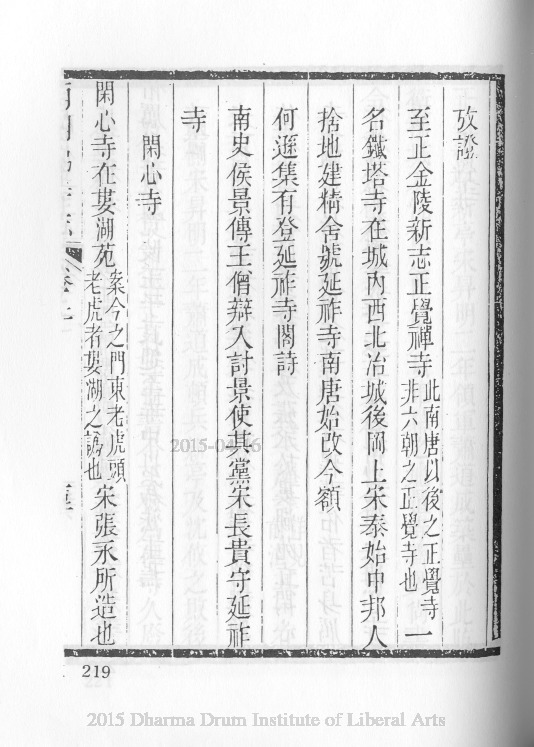 攷證
至正金陵新志正覺禪寺此南唐以後之正覺寺非六朝之正覺寺也一
名鐵塔寺在城內西北冶城後岡上宋泰始中邦人
捨地建精舍號延祚寺南唐始改今額
何遜集有登延祚寺閣詩
南史侯景傳王僧辯入討景使其黨宋長貴守延祚
寺
閑心寺
閑心寺在婁湖苑案今之門東老虎頭老虎者婁湖之譌也宋張永所造也
219
2015 Dharma Drum Institute of Liberal Arts